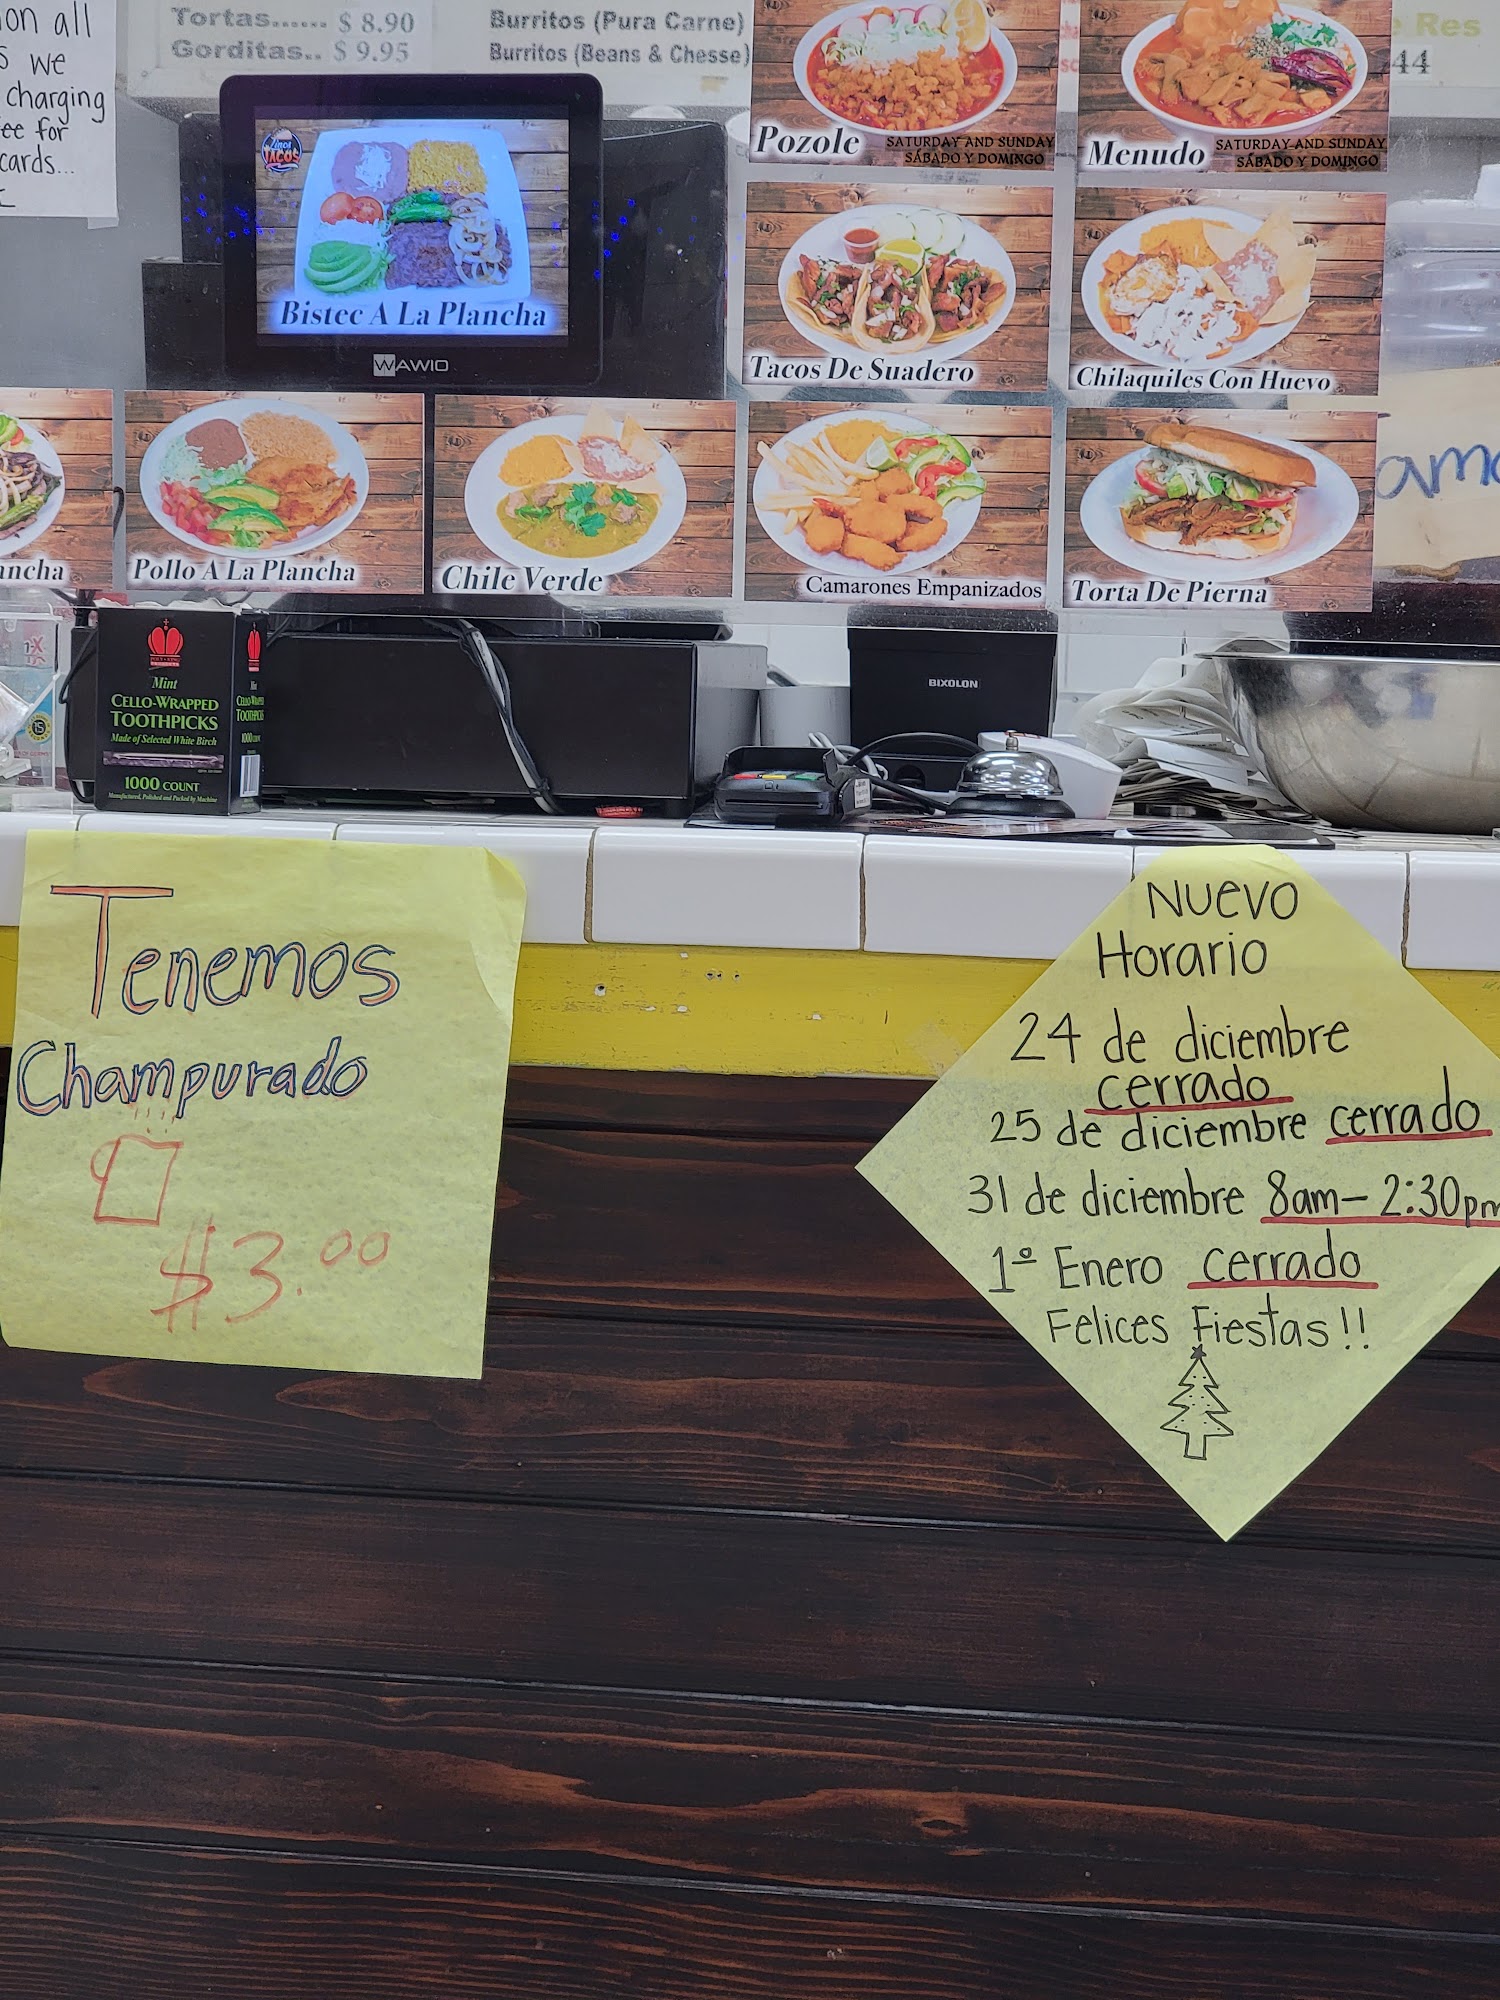 on all
we
charging
ee for
cards...
Tortas...... $ 8.90
Gorditas.. $ 9.95
Burritos (Pura Carne)
Burritos (Beans & Chesse)
Res
44
Pozole
SATURDAY AND SUNDAY
SÁBADO Y DOMINGO
Menudo
SATURDAY AND SUNDAY
SÁBADO Y DOMINGO
TACOS
Bistec A La Plancha
WAWIO
Tacos De Suadero
Chilaquiles Con Huevo
ancha
Pollo A La Plancha
Chile Verde
Camarones Empanizados
Torta De Pierna
ama
Mint
CELLO-WRAPPED
TOOTHPICKS
Made of Selected White Birch
1000 COUNT
Manufactured, Polished and Packed by Machine
BIXOLON
Tenemos
Champurado
$3.00
Nuevo
Horario
24 de diciembre
cerrado
25 de diciembre cerrado
31 de diciembre 8am-2:30pm
1º Enero cerrado
Felices Fiestas!!